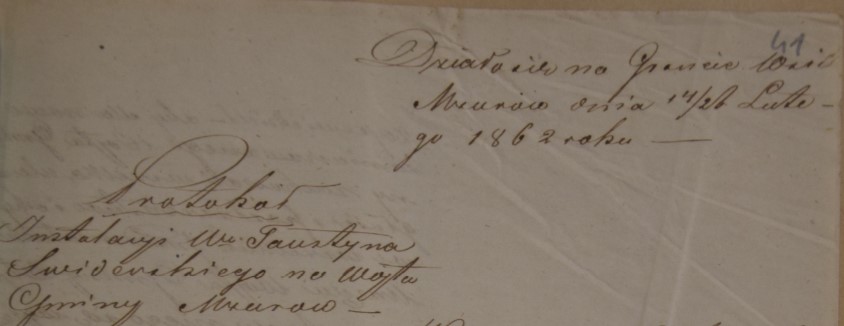 41
Działo się na Gruncie Wsi
Mzurów dnia 14/26 Lute-
go 1862 roku —
Protokół
Instalacyi Wo. Faustyna
Swiderskiego na Wójta
Gminy Mzurów —